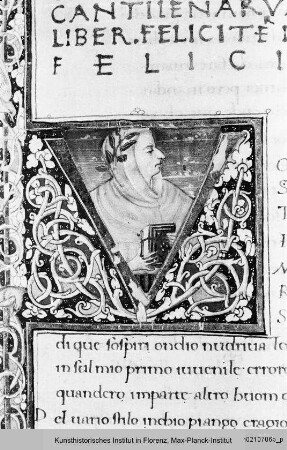 CANTILENARV
LIBER. FELICITE
FELICI
V
di que sospiri ondio nudriua lo
in sul mio primo iuuenile errore
quandero imparte altro huom d
el uario stilo inchio piango
Kunsthistorisches Institut in Florenz, Max-Planck-Institut